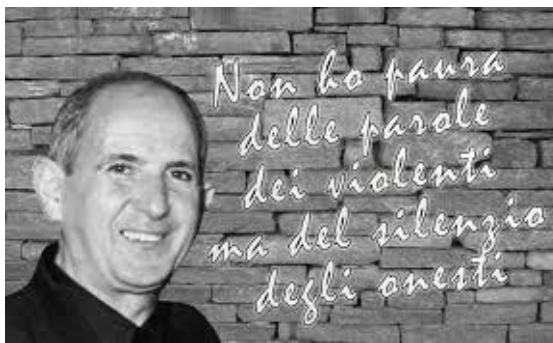 Non ho paura
delle parole
dei violenti
ma del silenzio
degli onesti